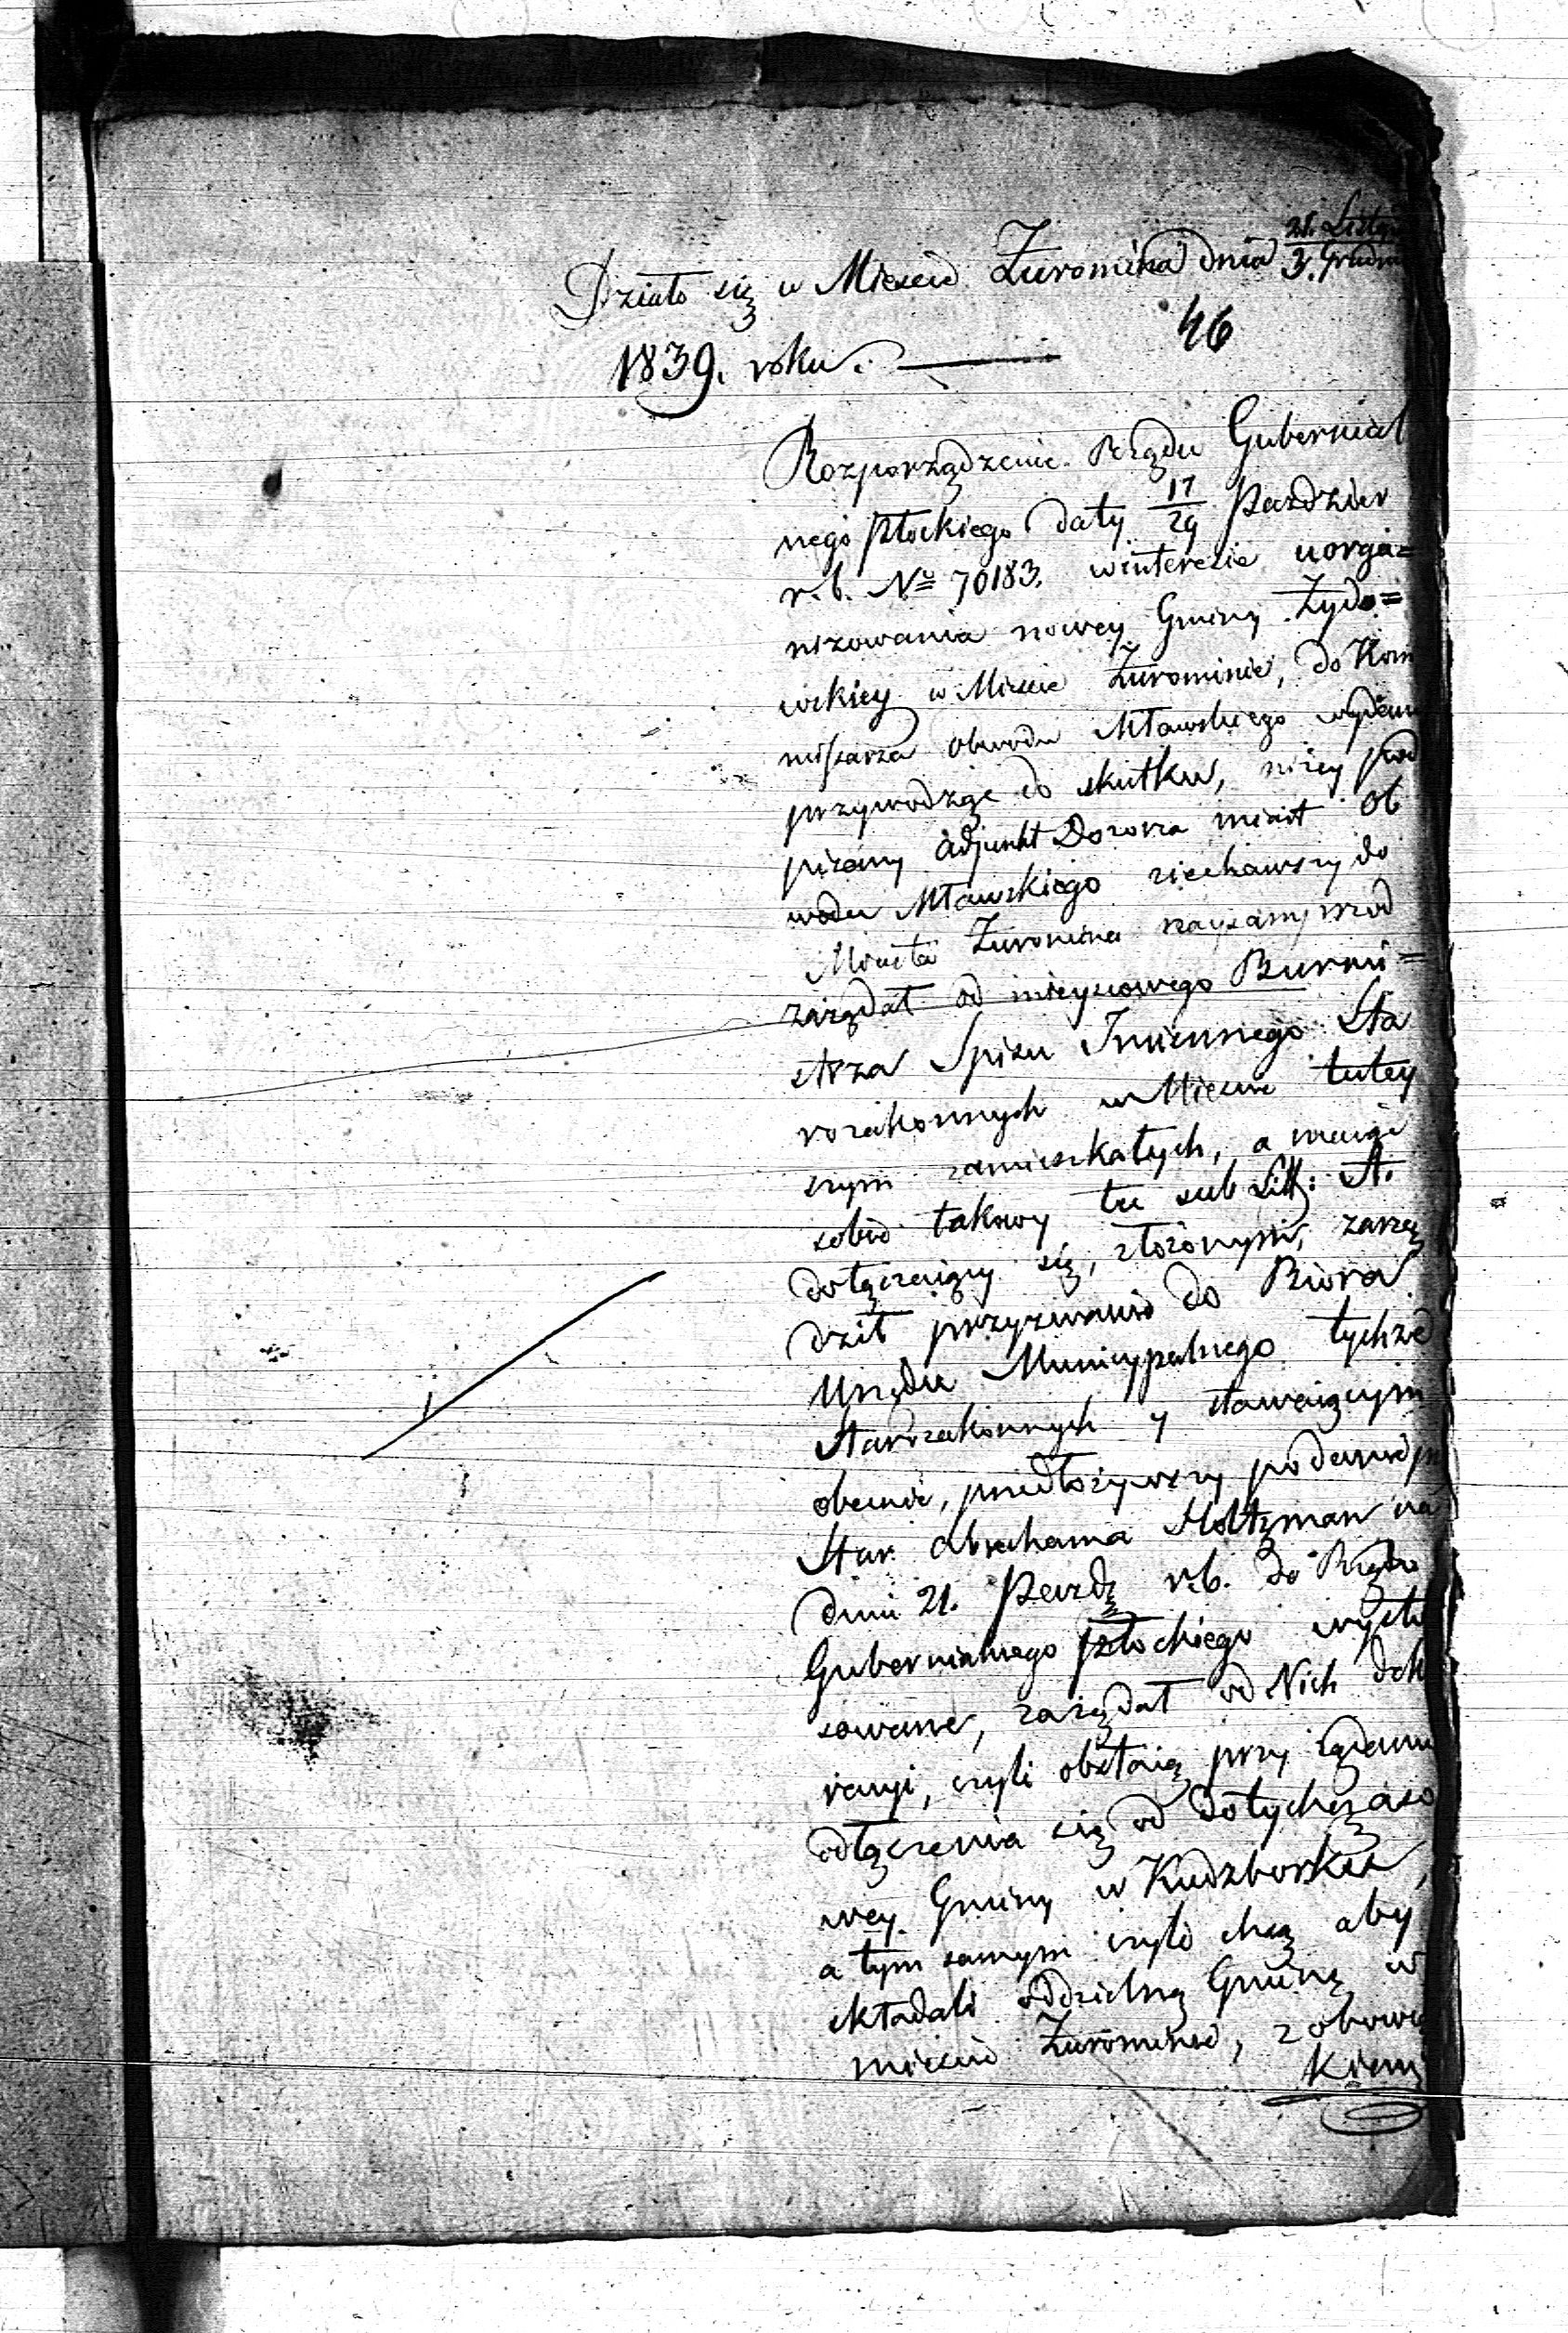 21. Listop
Działo się w Mieście Żuromina dnia 3. Grudnia
46
1839. roku.
Rozporządzenie Rządu Gubernial
nego Płockiego daty 17/29 Paździer
r. b. No 70183. w interesie uorga=
nizowania nowey Gminy Żydo=
wskiey w Mieście Żurominie, do Kom
missarza Obwodu Mławskiego wydane
przywodząc do skutku, niżey pod
pisany Adjunkt Dozorca miast Ob
wodu Mławskiego ziechawszy do
Miasta Żuromina naysamprzod
zażądał od mieyscowego Burmi=
strza Spisu Imiennego Sta
rozakonnych w Mieście tutey
szym zamieszkałych, a maiąc
sobie takowy tu sub Litt: A.
dołączaiący się, złożonym, zarzą
dził przyzwanie do Biora
Urzędu Municypalnego tychże
Starozakonnych y stawaiącym
obecnie, przedłożywszy podanie p
Star. Abrahama Holtzman na
dniu 21. Paźdz r.b. do Rządu
Gubernialnego Płockiego wysto
sowane, zażądał od Nich dekla
racyi, czyli obstaią przy żądaniu
odłączenia się od dotychczaso
wey Gminy w Kudzborku,
a tym samym czyli chcą aby
składali oddzielną Gminę w
mieście Żurominie, z obowią
kiem